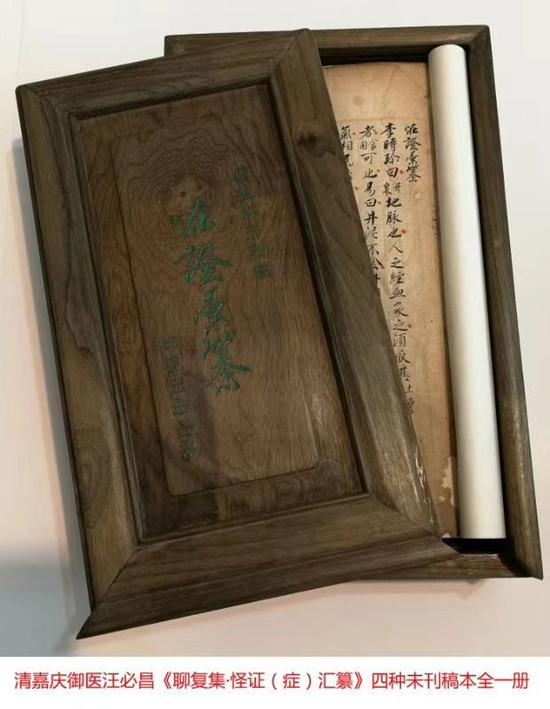 恠證彙纂
恠證彙纂
李時珍曰井泉地脉也人之經血象之須取其土厚
者食用可也易曰井泥不食井
氣相
清嘉庆御医汪必昌《聊复集·怪证（症）汇纂》四种未刊稿本全一册